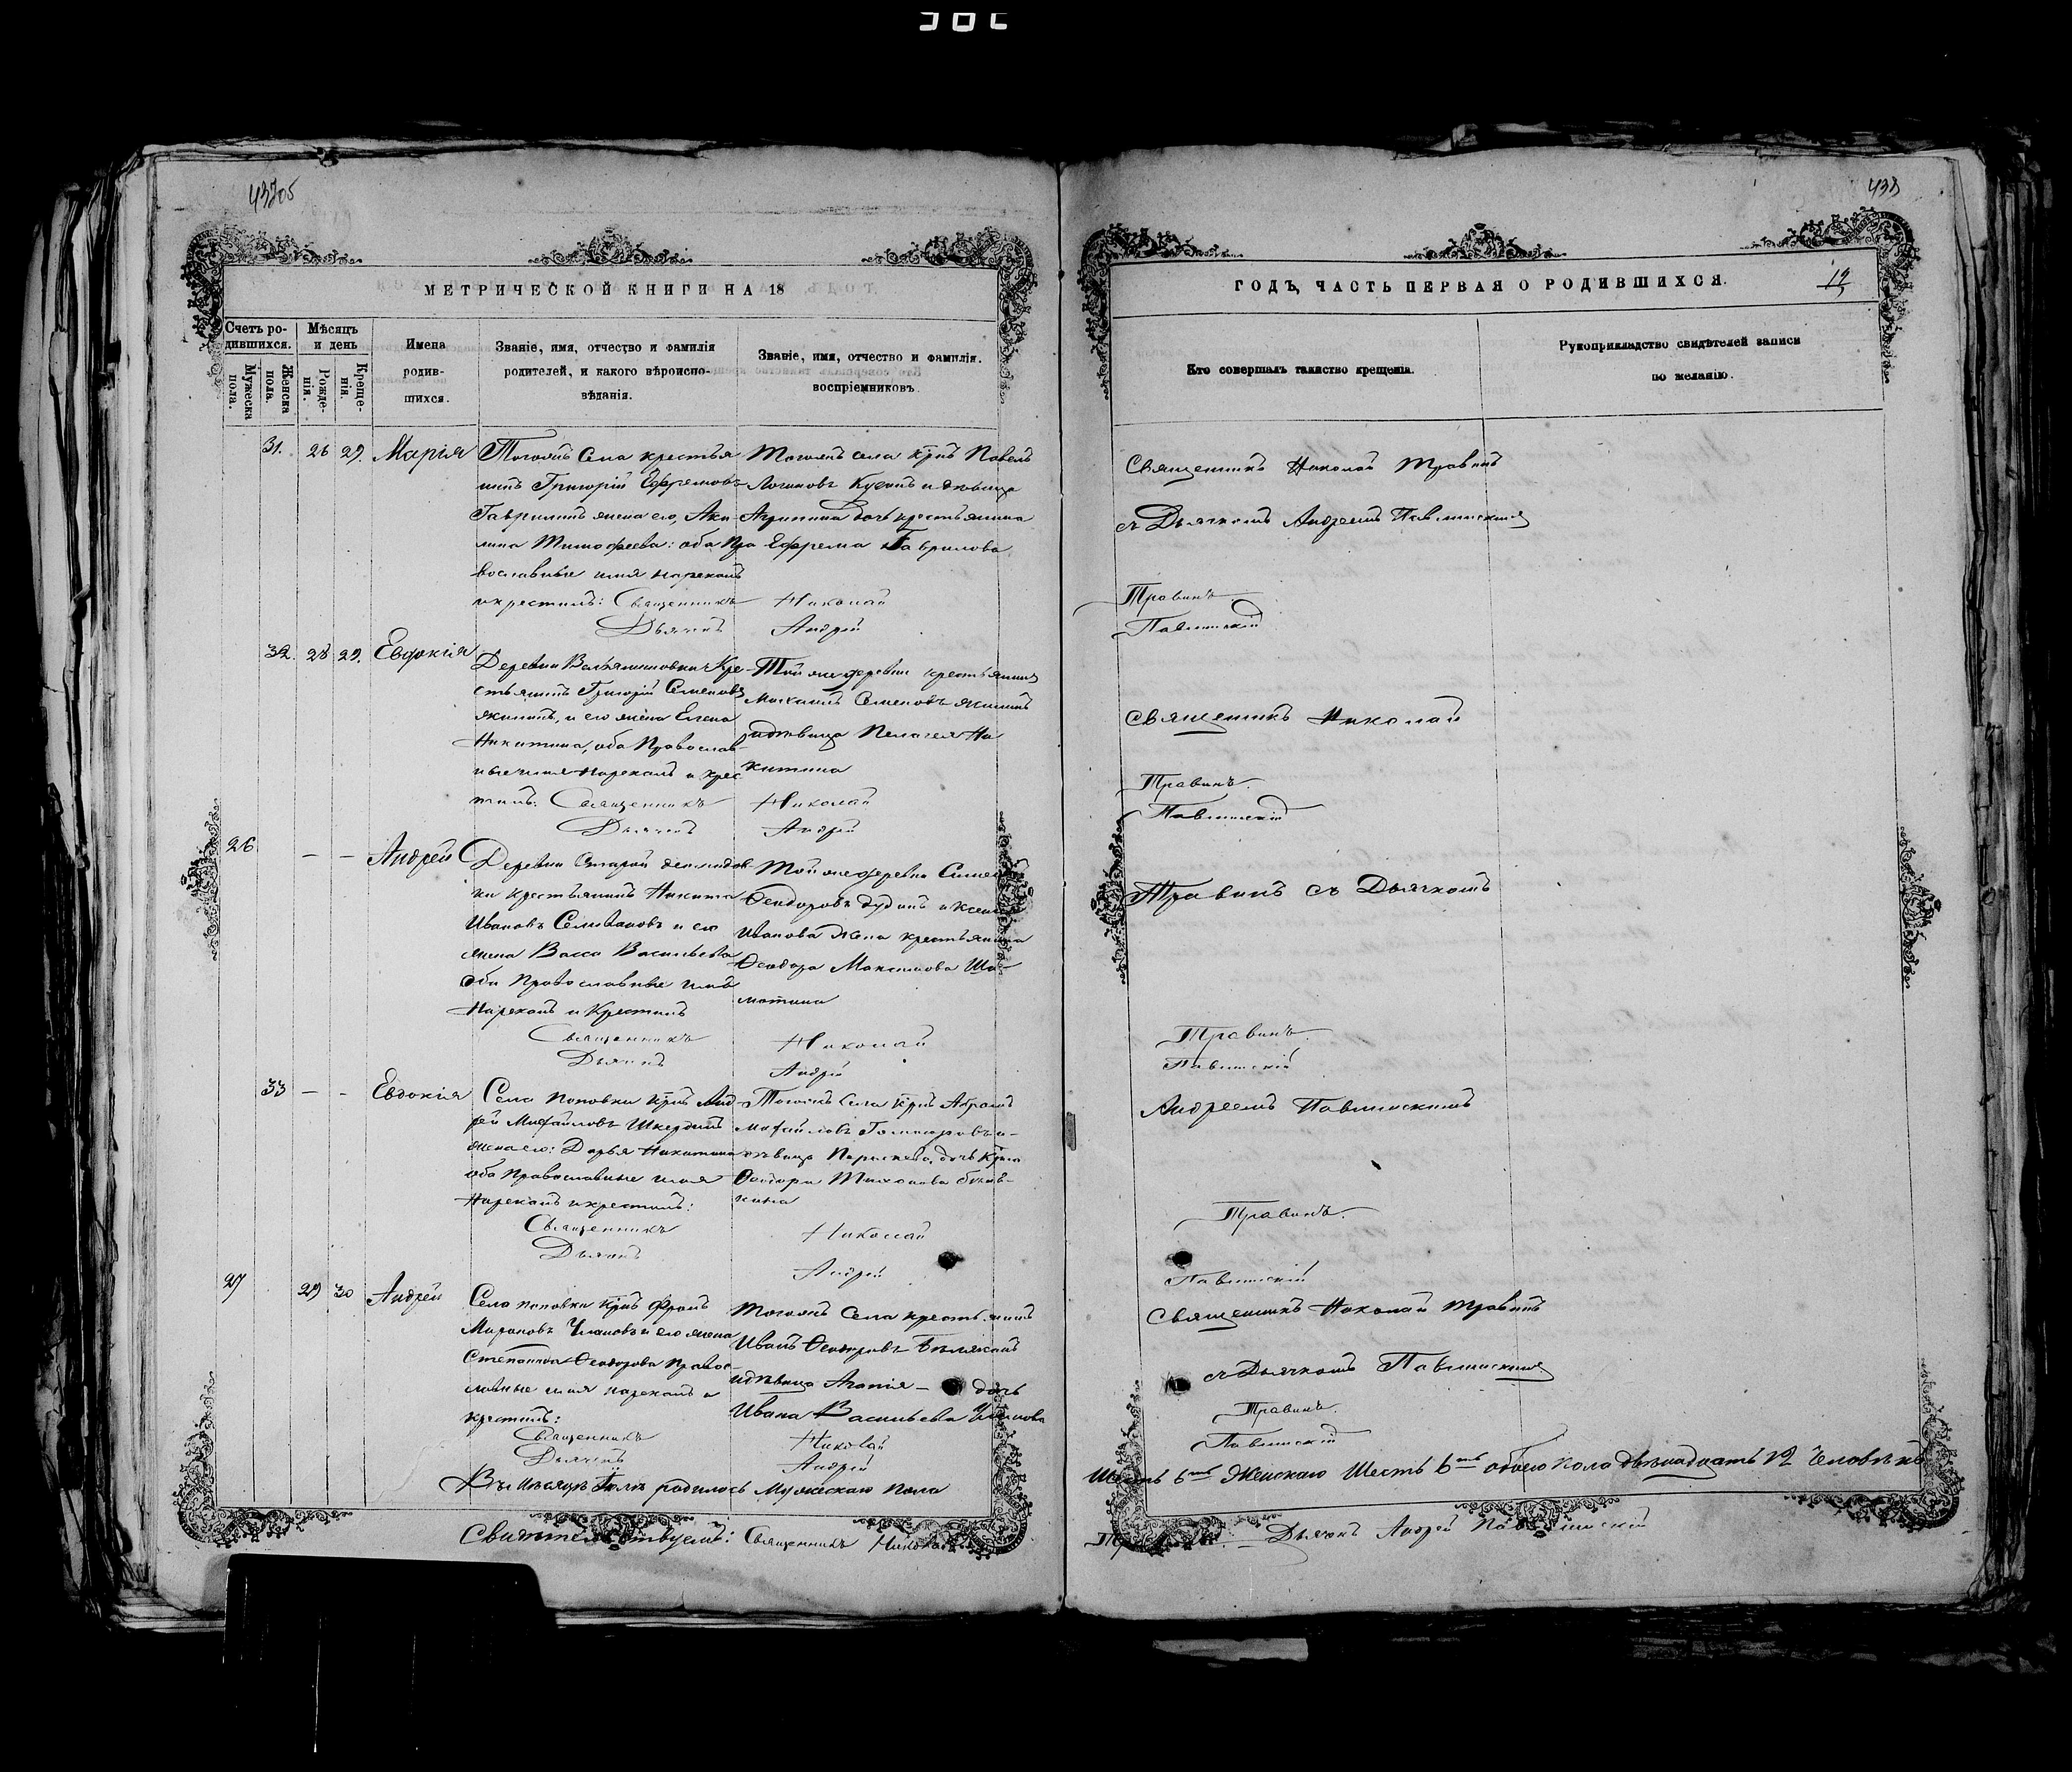 433
МЕТРИЧЕСКОЙ КНИГИ НА 18
Счетъ ро-
дившихся.
Мужеска
пола.
Женска
пола.
Мѣсяцъ
и день
Рожде-
нія.
Креще-
нія.
Имена
родив-
шихся.
Званіе, имя, отчество и фамилія
родителей, и какого вѣроиспо-
вѣданія.
Званіе, имя, отчество и фамилія.
воспріемниковъ
31. 26 29. Марія
Тогожъ Села крестья
нинъ Григорій Ефремовъ
Гаврилинъ жена его, Аки-
лина Тимофеева: оба Пра
вославные имя нарекалъ
и крестилъ: Священникъ
Дьячекъ
Тогожъ села крнъ Павелъ
Логиновъ и дѣвица
Агрипина дочь крестьянина
Ефрема Гаврилова
Николай
Андрей
32. 28 29. Евдокія
Деревни Кре-
стьянинъ Григорій Семеновъ
и его жена Елена
Никитина, оба Православ-
ные имя Нарекалъ и крес
тилъ: Священникъ
Дьячекъ
Той же деревни крестьянинъ
Михаилъ Семеновъ
и дѣвица Пелагея Ни
китина
Николай
Андрей
26 — — Андрей
Деревни Старой демидов-
ки крестьянинъ Никита
Ивановъ Селивановъ и его
жена Васса Васильева
оба Православные имя
Нарекалъ и Крестилъ
Священникъ
Дьячекъ
Той же деревни
Ѳеодоровъ Дудинъ и
Иванова Жена крестьянина
Ѳеодора Максимова Ша-
матина
Николай
Андрей
33 — - Евдокія
Села Поповки крнъ Анд-
рей Михайловъ
жена его: Дарья Никитина
оба Православные имя
Нарекалъ и крестилъ:
Священникъ
Дьячекъ
Тогожъ Села крнъ Абрамъ
Михайловъ и-
дѣвица Параскева, дочь крна
Ѳеодора Тихонова
кина
Николай
Андрей
27 29 30 Андрей
Села поповки крнъ
Мироновъ и его жена
Степанида Ѳеодорова Правос-
лавные имя нарекалъ и
крестилъ:
Священникъ
Дьячекъ
Тогожъ Села крестьянинъ
Иванъ Ѳеодоровъ
и дѣвица Агапія — дочь
Ивана Васильева
Николай
Андрей
Въ Мѣсяцѣ Іюлѣ родилось Мужескаго пола
Свидѣтельствуемъ: Священникъ Николай
433
ГОДЪ, ЧАСТЬ ПЕРВАЯ О РОДИВШИХСЯ.
12
Кто совершалъ таинство крещенія.
Рукоприкладство свидѣтелей записи
по желанію.
Священникъ Николай Травинъ
съ Дьячкомъ Андреемъ Павлинскимъ
Травинъ
Павлинскій
Священникъ Николай
Травинъ.
Павлинскій
Травинъ съ Дьячкомъ
Травинъ.
Павлинскій
Андреемъ Павлинскимъ
Травинъ.
Павлинскій
Священникъ Николай Травинъ
съ Дьячкомъ Павлинскимъ
Травинъ.
Павлинскій
Шесть 6ть Женскаго Шесть 6ть обоего пола двѣнадцать 12 Человѣкъ
Дьячекъ Андрей Павлинскій